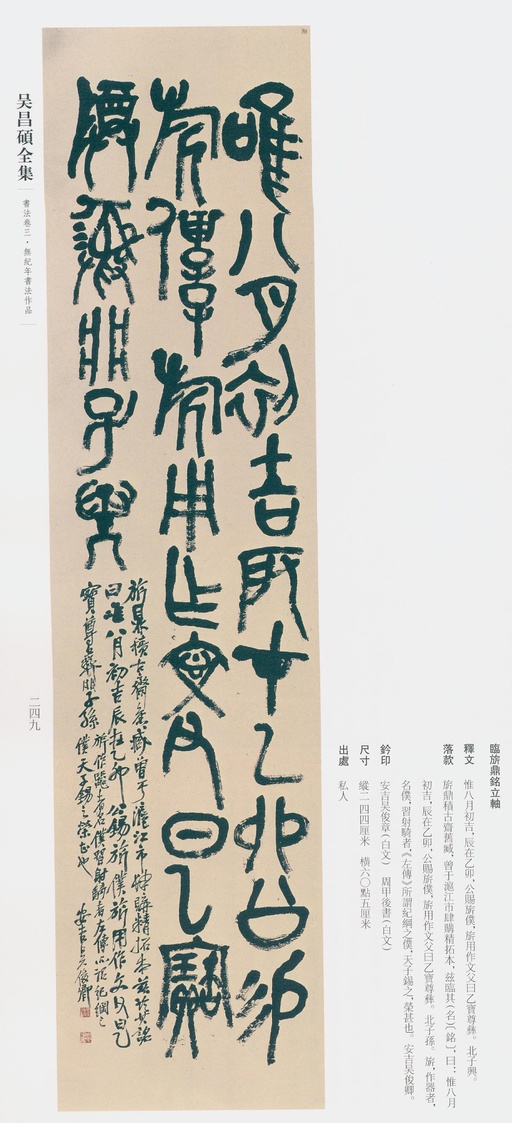 臨旂鼎銘立軸
釋文 惟八月初吉，辰在乙卯，公賜旂僕，旂用作文父曰乙寶尊彝。北子興。
落款 旂鼎積古齋舊臧，曾于滬江市肆購精拓本，兹臨其（名）〔銘〕，曰：惟八月
初吉，辰在乙卯，公賜旂僕，旂用作文父曰乙寶尊彝。北子孫。旂，作器者，
名僕，習射騎者，《左傳》所謂紀綱之僕，天子錫之，榮甚也。安吉吴俊卿。
鈐印 安吉吴俊章（白文） 周甲後書（白文）
尺寸 縱二四四厘米 横六〇點五厘米
出處 私人
唯八月初吉辰才乙卯公易
旂僕旂用乍文父日乙寶
尊彝北子興
旂鼎積古齋舊臧曾于滬江市肆購精拓本兹臨其銘
曰唯八月初吉辰在乙卯公錫旂僕旂用作文父日乙
寶尊彝北子孫 旂作器者名僕習射騎者左傳所謂紀綱之
僕天子錫之榮甚也 安吉吴俊卿
吴昌碩全集
書法卷三·無紀年書法作品
二四九